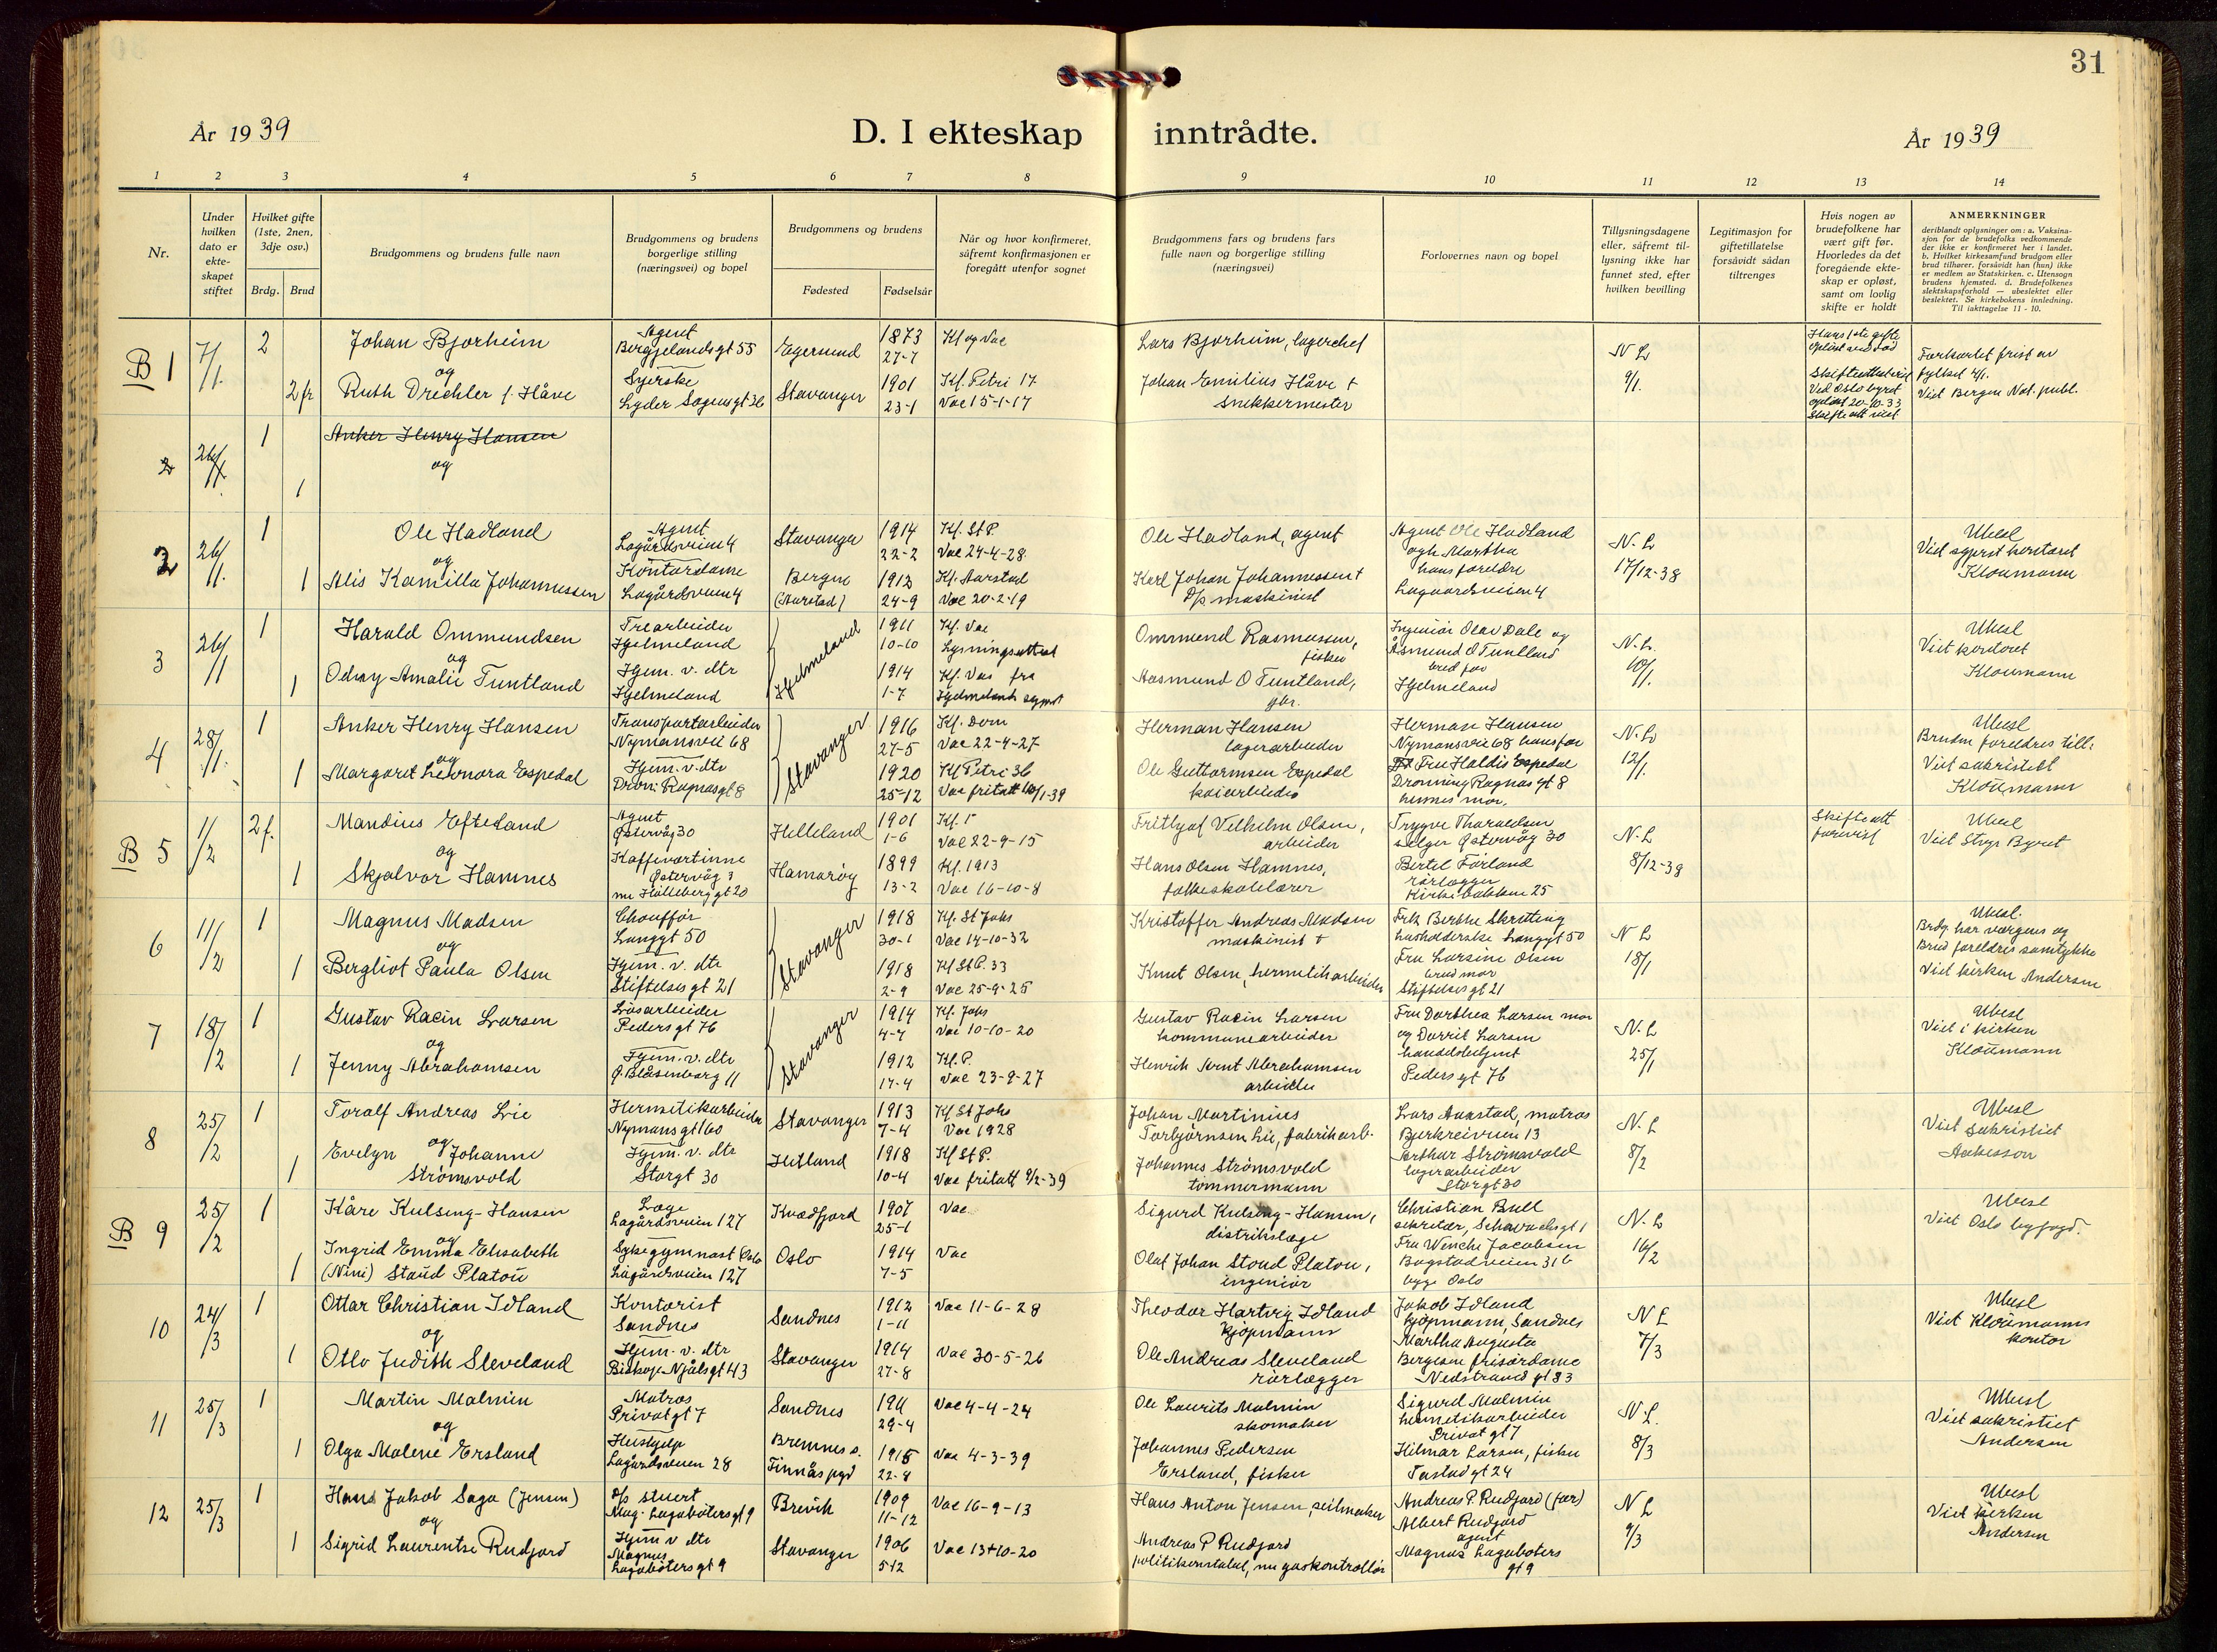 31
År 1939
D. I ekteskap inntrådte.
År 1939
1 2 3 4 5 6 7 8 9 10 11 12 13 14
Nr.
Under hvilken dato er ekte-skapet stiftet
Hvilket gifte (1ste, 2nen, 3dje osv.)
Brdg. Brud
Brudgommens og brudens fulle navn
Brudgommens og brudens borgerlige stilling (næringsvei) og bopel
Brudgommens og brudens
Fødested Fødselsår
Når og hvor konfirmeret, såfremt konfirmasjonen er foregått utenfor sognet
Brudgommens fars og brudens fars fulle navn og borgerlige stilling (næringsvei)
Forlovernes navn og bopel
Tillysningsdagene eller, såfremt til-lysning ikke har funnet sted, efter hvilken bevilling
Legitimasjon for giftetillatelse forsåvidt sådan tiltrenges
Hvis nogen av brudefolkene har vært gift før. Hvorledes da det foregående ekte-skap er opløst, samt om lovlig skifte er holdt
ANMERKNINGER
deriblandt oplysninger om: a. Vaksina-sjon for de brudefolks vedkommende der ikke er konfirmeret her i landet. b. Hvilket kirkesamfund brudgom eller brud tilhører, forsåvidt han (hun) ikke er medlem av Statskirken. c. Utensogn brudens hjemsted. d. Brudefolkenes slektskapsforhold — ubeslektet eller beslektet. Se kirkebokens innledning. Til iakttagelse 11 - 10.
B 1 7/1. 2 Johan Bjorheim Agent Bergjelandsgt 55 Egersund 1873 27-7 Kf og Vac Lars Bjorheim, lagerchef N L 9/1.
og
2 fr Ruth Drechler f. Håve Syerske Lyder Sagensgt 36 Stavanger 1901 23-1 Kf. Petri 17 Vac 15-1-17 Johan Emilius Håve + snekkermester
Ved Oslo byret opløst 20-10-33
Forkortet frist av fylket
Viet Bergen Not. publ.
2 26/1. 1 Anker Henry Hansen
og
1
2 26/1. 1 Ole Hadland Agent Lagårdsveien 4 Stavanger 1914 22-2 Kf. St P. Vac 24-4-28 Ole Hadland, agent Agent Ole Hadland og Martha hans foreldre Lagaardsveien 4 N. L 17/12-38 Ubesl
og
1 Alis Kamilla Johannessen Kontordame Lagårdsveien 4 Bergen (Aarstad) 1912 24-9 Kf. Aarstad Vac 20-2-19 Karl Johan Johannessen + D/p maskinist
Kloumann
3 26/1 1 Harald Ommundsen Trearbeider Hjelmeland Hjelmeland 1911 10-10 Kf. Vac Lysningsattest Ommund Rasmussen, fisker Ingeniør Olav Dale og Åsmund O Tuntland brud far Hjelmeland N. L. 10/1. Ubesl Viet kontoret Kloumann
og
1 Odny Amalie Tuntland Hjem. v. dtr Hjelmeland 1914 1-7 Kf. Vac fra Hjelmeland Aasmund O Tuntland, gbr.
4 28/1. 1 Anker Henry Hansen Transportarbeider Nymansvei 68 Stavanger 1916 27-5 Kf. Dom Vac 22-4-27 Herman Hansen lagerarbeider Herman Hansen Nymansvei 68 hans far N. L 12/1. Ubesl
og
1 Margaret Leonora Espedal Hjem. v. dtr Dronn. Ragnasgt 8 1920 25-12 Kf Petri 36 Vac fritatt 10/1-39 Ole Guttormsen Espedal kaiarbeider Fru Haldis Espedal Dronning Ragnas gt 8 hennes mor. Brudens foreldres till. Viet sakristiet Kloumann
B 5 1/2 2 f. Mandius Efteland Agent Østervåg 30 Helleland 1901 1-6 Vac 22-9-15 Frithjof Vilhelm Olsen, arbeider Trygve Tharaldsen selger Østervåg 30 N. L 8/12-38 Skifteatt forevist Ubesl Viet Stvgr Byret
og
1 Skjalvor Hamnes Kaffevertinne Østervåg 3 Hamarøy 1899 13-2 Kf. 1913 Vac 16-10-8 Hans Olsen Hamnes, folkeskolelærer Bertel Førland rørlegger Kirkebakken 25
6 11/2 1 Magnus Madsen Chauffør Langgt 50 Stavanger 1918 30-1 Kf. St Johs Vac 14-10-32 Kristoffer Andreas Madsen maskinist + Frk Berthe Skretting husholderske Langgt 50 N L 18/1 Ubesl.
og
1 Bergliot Paula Olsen Hjem. v. dtr Stiftelsesgt 21 1918 2-9 Kf St P. 33 Vac 25-9-25 Knut Olsen, hermetikarbeider Fru Larsine Olsen brud mor Stiftelsesgt 21 Brdg. har værgens og Brud foreldres samtykke Viet kirken Andersen
7 18/2 1 Gustav Racin Larsen Løsarbeider Pedersgt 76 Stavanger 1914 4-7 Kf. Johs Vac 10-10-20 Gustav Racin Larsen kommunearbeider Fru Dorthea Larsen mor og Dorrit Larsen handelsbetjent Pedersgt 76 N. L 25/1 Ubesl Viet i kirken Kloumann
og
1 Jenny Abrahamsen Hjem. v. dtr Ø. Blåsenborg 11 1912 17-4 Kf. P. Vac 23-9-27 Henrik Arnt Abrahamsen arbeider
8 25/2 1 Toralf Andreas Lie Hermetikarbeider Nymansgt 160 Stavanger 1913 7-4 Kf St Johs Vac 1928 Johan Martinius Torbjørnsen Lie, fabrikarb. Lars Aanstad, matros Bjerkreimveien 13 N. L 8/2 Ubesl Viet sakristiet
og
1 Evelyn Johanne Strømsvold Hjem. v. dtr Storgt 30 Hetland 1918 10-4 Kf St P. Vac fritatt 9/2-39 Johannes Strømsvold tømmermann Arthur Strømsvold lagerarbeider Storgt 30
B 9 25/2 1 Kåre Kulseng-Hansen Læge Lagårdsveien 127 Kvædfjord 1907 25-1 Vac. Sigurd Kulseng-Hansen, distriktslæge Christian Bull sekretær, N. L 16/2 Ubesl Viet Oslo byfogd.
og
1 Ingrid Emma Elisabeth (Nini) Stoud Platou Sykegymnast Oslo Lagårdsveien 127 Oslo 1914 7-5 Vac Olaf Johan Stoud Platou, ingeniør Fru Wenche Jacobsen Bogstadveien 31 b Oslo
10 24/3 1 Ottar Christian Idland Kontorist Sandnes Sandnes 1912 1-11 Vac 11-6-28 Theodor Hartvig Idland kjøpmann Jakob Idland kjøpmann, Sandnes N L 7/3 Ubesl Viet Kloumanns kontor
og
1 Otto Judith Sleveland Hjem. v. dtr Biskop Njålsgt 43 Stavanger 1914 27-8 Vac 30-5-26 Ole Andreas Sleveland rørlegger Martha Augusta Bergesen frisørdame Nedstrandgt 83
11 25/3 1 Martin Malmin Matros Privatgt 7 Sandnes 1911 29-4 Vac 4-4-24 Ole Laurits Malmin skomaker Sigurd Malmin hermetikarbeider Privatgt 7 N. L. 8/3 Ubesl Viet sakristiet Andersen
og
1 Olga Malene Ersland Hushjelp Lagårdsveien 28 Bremnes s. Finnås pgd 1915 22-8 Vac 4-3-39 Johannes Pedersen Ersland, fisker Hilmar Larsen, fisker Tastadgt 24
12 25/3 1 Hans Jakob Saga (Jensen) D/s stuert Mag. Lagabøtersgt 9 Brevik 1909 11-12 Vac 16-9-13 Hans Anton Jensen, seilmaker Andreas P. Rudjord (far) N L 9/3 Ubesl Viet kirken Andersen
og
1 Sigrid Laurentse Rudjord Hjem v dtr Magnus Lagabøtersgt 9 Stavanger 1906 5-12 Vac 13-10-20 Andreas P Rudjord politikonstabel, nu gaskontrollør Albert Rudjord agent Magnus Lagabøters gt 9